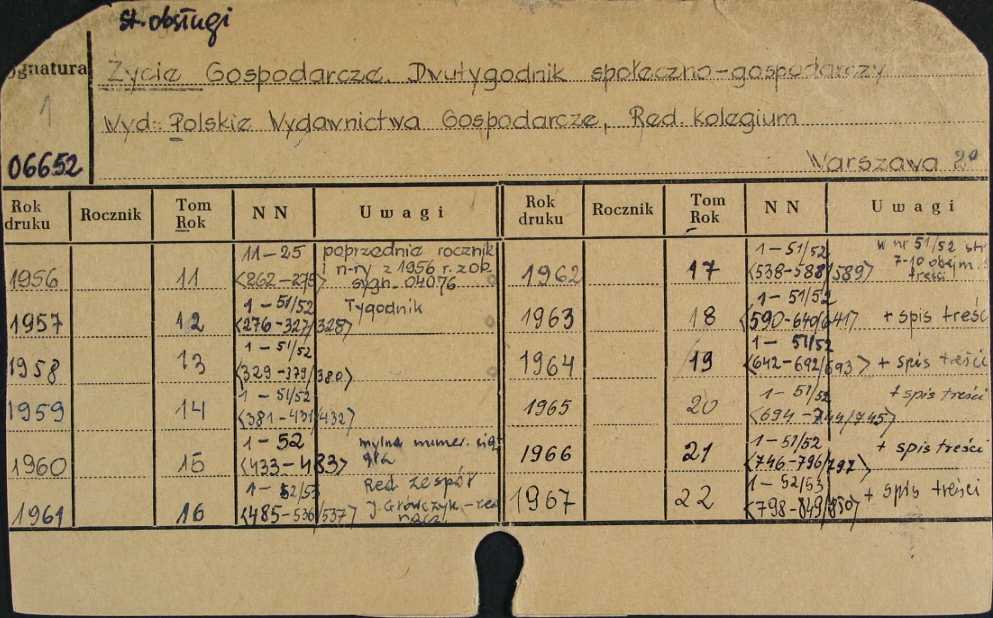 st. obsługi
Sygnatura
Życie Gospodarcze. Dwutygodnik społeczno-gospodarczy
1
Wyd: Polskie Wydawnictwa Gospodarcze, Red. kolegium
06652
Warszawa 2°
Rok druku Rocznik Tom Rok NN Uwagi Rok druku Rocznik Tom Rok NN Uwagi
1956 11 11-25 <262-275> poprzednie roczniki
i n-ry z 1956 r. zob.
sygn. 04076
1957 12 1-51/52 <276-327/328> Tygodnik
1958 13 1-51/52 <329-379/380>
1959 14 1-51/52 <381-431/432>
1960 15 1-52 <433-483> mylna numer. ciągła
1961 16 1-52/53 <485-536/537> Red zespół
J. Główczyk, -
1962 17 1-51/52 <538-588/589> w nr 51/52 str
7-10 obejm.
treści
1963 18 1-51/52 <590-640/641> + spis treśc
1964 19 1-51/52 <642-692/693> + spis treści
1965 20 1-51/52 <694-744/745> + spis treści
1966 21 1-51/52 <746-796/797> + spis treści
1967 22 1-52/53 <798-849/850> + spis treści